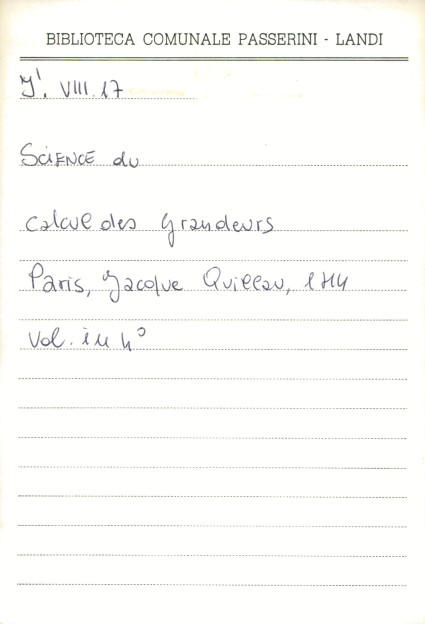 BIBLIOTECA COMUNALE PASSERINI - LANDI
J'. VIII. 17
SCIENCE du
calcul des grandeurs
Paris, Jacque Quillau, 1714
Vol. in 4°